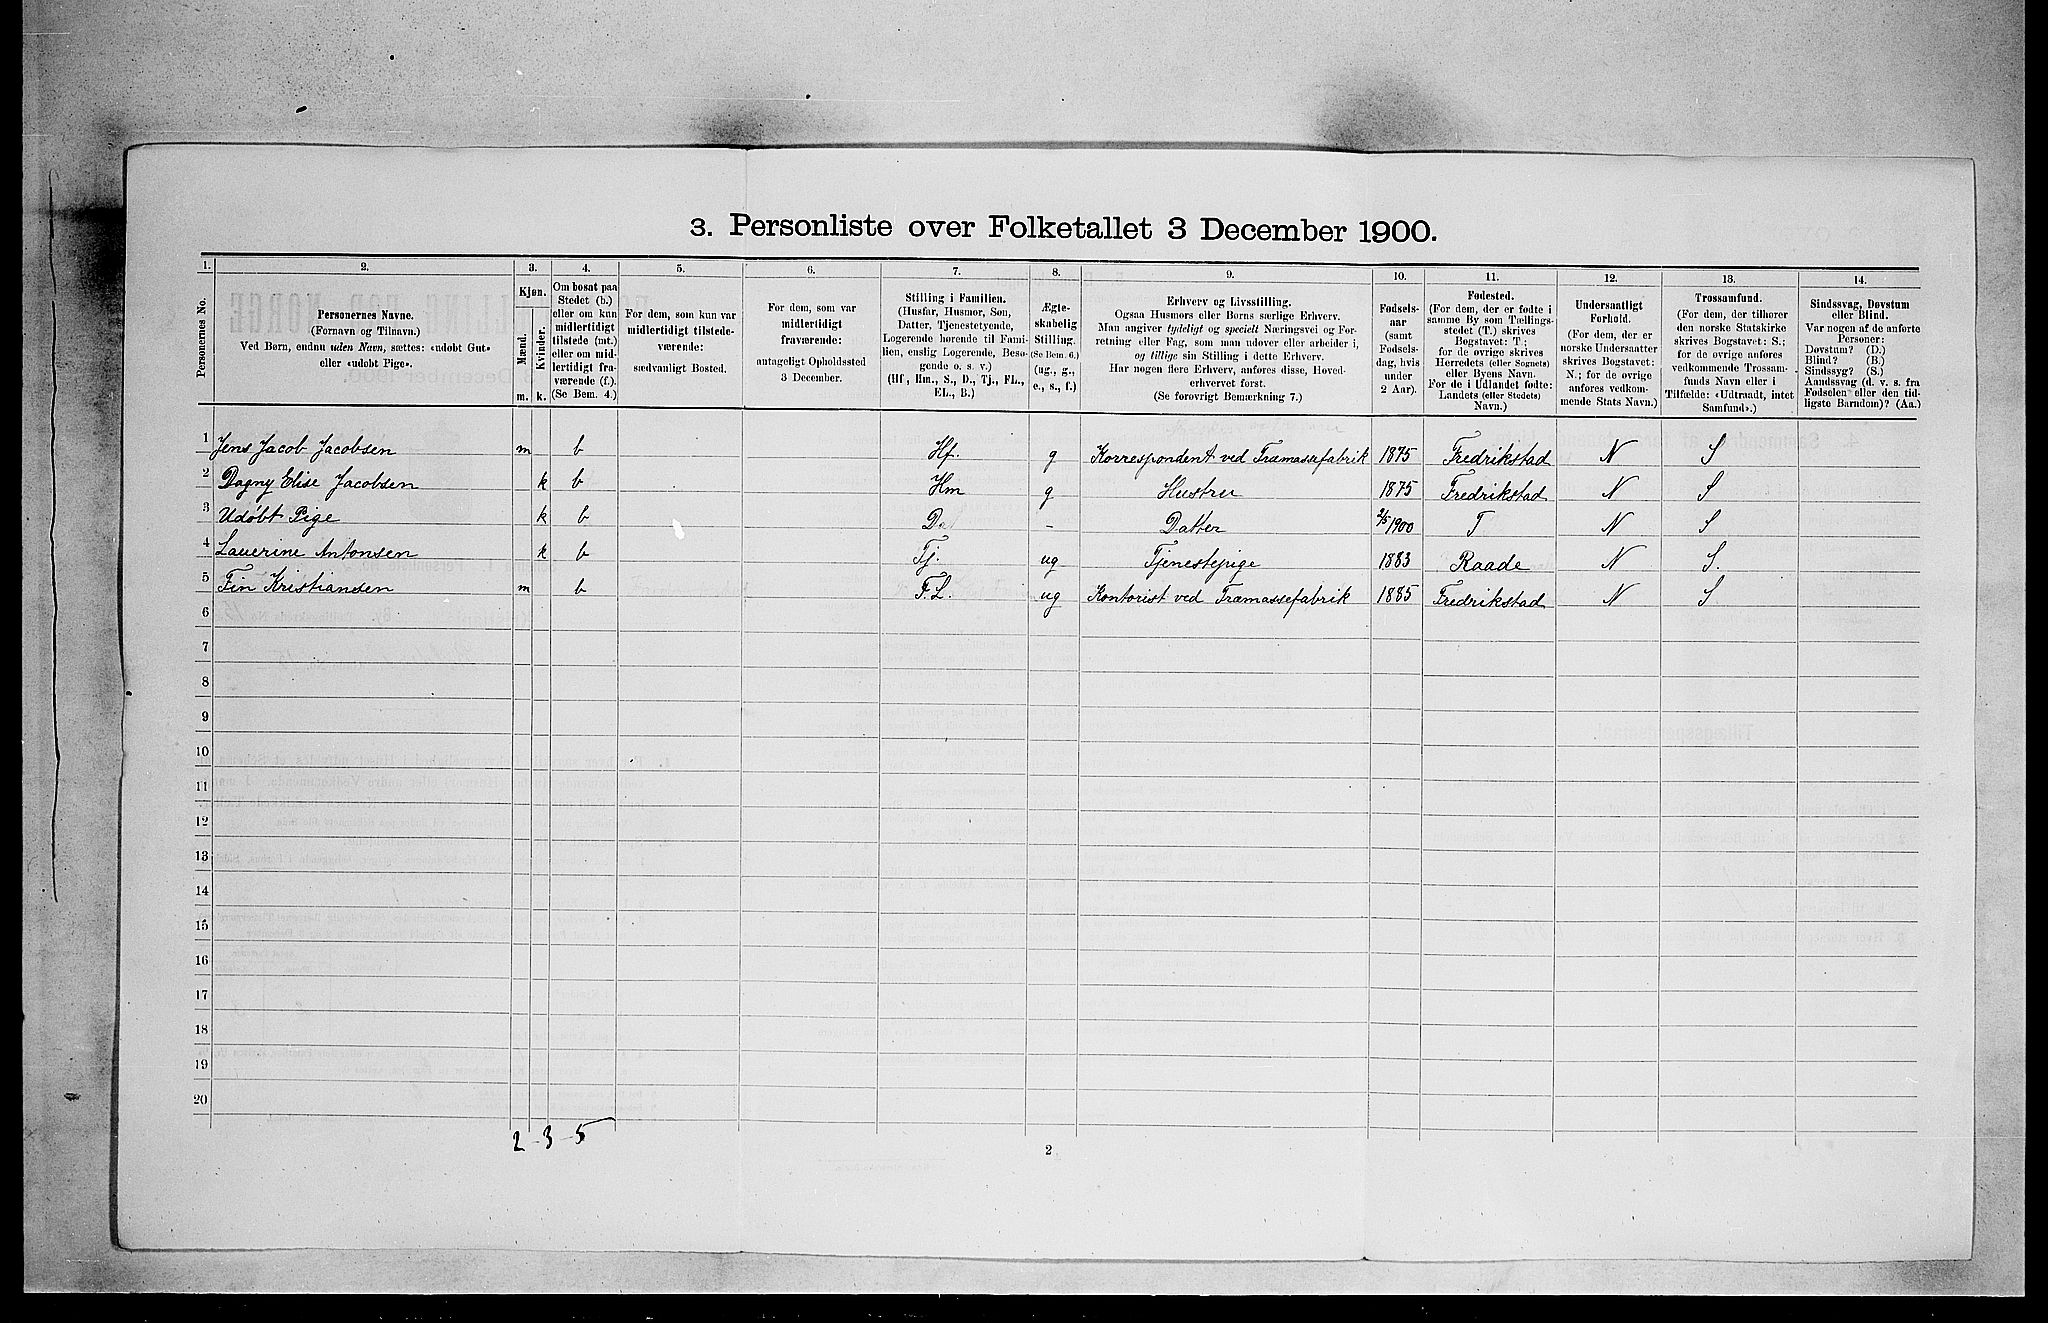 3. Personliste over Folketallet 3 December 1900.
1. 2. 3. 4. 5. 6. 7. 8. 9. 10. 11. 12. 13. 14.
Personernes No.
Personernes Navne.
(Fornavn og Tilnavn.)
Ved Børn, endnu uden Navn, sættes: «udøbt Gut»
eller «udøbt Pige».
Kjøn.
Mænd.
Kvinder.
m. k.
Om bosat paa
Stedet (b.)
eller om kun
midlertidigt
tilstede (mt.)
eller om mid-
lertidigt fra-
værende (f.)
(Se Bem. 4.)
For dem, som kun var
midlertidigt tilstede-
værende:
sædvanligt Bosted.
For dem, som var
midlertidigt
fraværende:
antageligt Opholdssted
3 December.
Stilling i Familien.
(Husfar, Husmor, Søn,
Datter, Tjenestetyende,
Logerende hørende til Fami-
lien, enslig Logerende, Besø-
gende o. s. v.)
(Hf, Hm., S., D., Tj., FL.,
EL., B.)
Ægte-
skabelig
Stilling.
(Se Bem. 6.)
(ug., g.,
e., s., f.)
Erhverv og Livsstilling.
Ogsaa Husmors eller Børns særlige Erhverv.
Man angiver tydeligt og specielt Næringsvei og For-
retning eller Fag, som man udøver eller arbeider i,
og tillige sin Stilling i dette Erhverv.
Har nogen flere Erhverv, anføres disse, Hoved-
erhvervet først.
(Se forøvrigt Bemærkning 7.)
Fødsels-
aar
(samt
Fødsels-
dag, hvis
under
2 Aar).
Fødested.
(For dem, der er fødte i
samme By som Tællings-
stedet (T.) skrives
Bogstavet: T.;
for de øvrige skrives
Herredets (eller Sognets)
eller Byens Navn.
For de i Udlandet fødte:
Landets (eller Stedets)
Navn.)
Undersaatligt
Forhold.
(For dem, der er
norske Undersaatter
skrives Bogstavet:
N.; for de øvrige
anføres vedkom-
mende Stats Navn.)
Trossamfund.
(For dem, der tilhører
den norske Statskirke
skrives Bogstavet: S.;
for de øvrige anføres
vedkommende Trossam-
funds Navn eller i
Tilfælde: «Udtraadt, intet
Samfund».)
Sindssvag, Døvstum
eller Blind.
Var nogen af de anførte
Personer:
Døvstum? (D.)
Blind? (B.)
Sindssyg? (S.)
Aandssvag (d. v. s. fra
Fødselen eller den tid-
ligste Barndom)? (Aa.)
1 Jens Jacob Jacobsen m b Hf. g Korrespondent ved Træmassefabrik 1875 Fredrikstad N S
2 Dagny Elise Jacobsen k b Hm g Hustru 1875 Fredrikstad N S
3 Udøbt Pige k b D - Datter 2/5 1900 T N S
4 Laurine Antonsen k b Tj. ug Tjenestepige 1883 Raade N S.
5 Fin Kristiansen m b F.L. ug Kontorist ved Træmassefabrik 1885 Fredrikstad N S
6
7
8
9
10
11
12
13
14
15
16
17
18
19
20
2 - 3 - 5
2